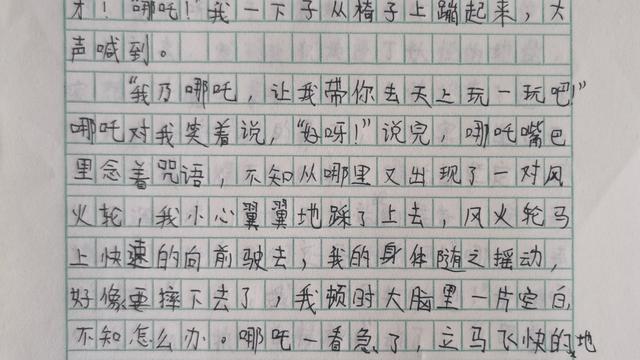 才！“哪吒！”我一下子从椅子上蹦起来，大
声喊到。
“我乃哪吒，让我带你去天上玩一玩吧！”
哪吒对我笑着说，“好呀！”说完，哪吒嘴巴
里念着咒语，不知从哪里又出现了一对风
火轮 我小心翼翼地踩了上去，风火轮马
上快速的向前驶去，我的身体随之摇动，
好像要摔下去了，我顿时大脑里一片空白，
不知怎么办。哪吒一看急了，立马飞快的地